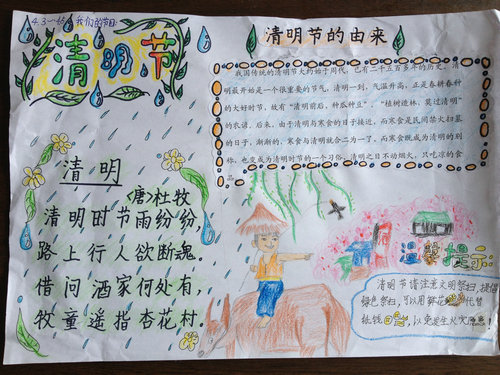 我们的节日:
清明节
清明
<唐>杜牧
清明时节雨纷纷,
路上行人欲断魂。
借问酒家何处有,
牧童遥指杏花村。
清明节的由来
我国传统的清明节大约始于周代,已有二千五百多年的历史。清
明最开始是一个很重要的节气,清明一到,气温升高,正是春耕春种
的大好时节,故有“清明前后,种瓜种豆”。“植树造林,莫过清明”
的农谚。后来,由于清明与寒食的日子接近,而寒食是民间禁火扫墓
的日子,渐渐的,寒食与清明就合二为一了,而寒食既成为清明的别
称,也变成为清明时节的一个习俗,清明之日不动烟火,只吃凉的食
品。
温馨提示:
清明节请注意文明祭扫,提倡
绿色祭扫,可以用鲜花代替
纸钱,以免发生火灾隐患!